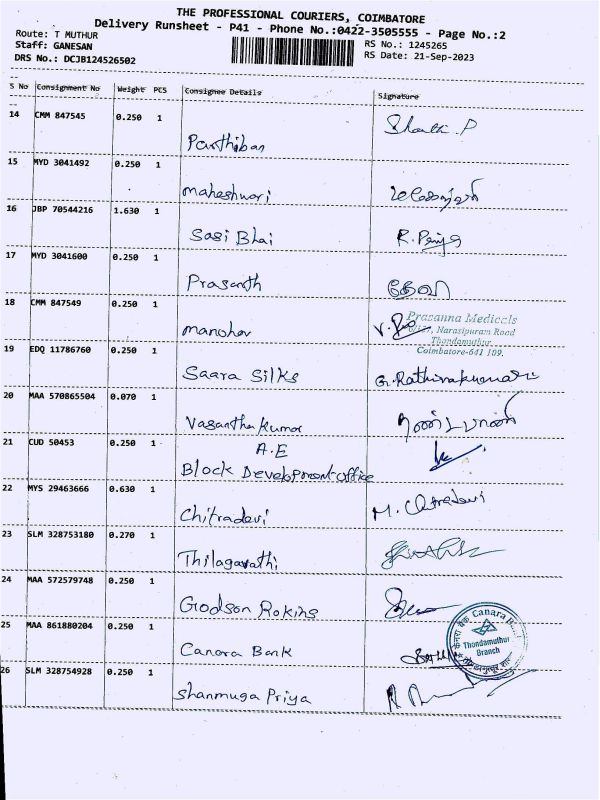 THE PROFESSIONAL COURIERS, COIMBATORE
Delivery Runsheet - P41 - Phone No.:0422-3505555 - Page No.:2
Route: T MUTHUR
RS No.: 1245265
Staff: GANESAN
RS Date: 21-Sep-2023
DRS No.: DCJB124526502
S No Consignment No Weight PCS Consignee Details Signature
14 CMM 847545 0.250 1
Parthiban
15 MYD 3041492 0.250 1
maheshwari
16 JBP 70544216 1.630 1
Sasi Bhai R. Priya
17 MYD 3041600 0.250 1
Prasanth
18 CMM 847549 0.250 1
manohar
Prasanna Medicals
Narasipuram Road
Thondamuthur
Coimbatore-641 109.
19 EDQ 11786760 0.250 1
Saara Silks G. Rathinakumari
20 MAA 570865504 0.070 1
Vasantha Kumar
21 CUD 50453 0.250 1
A.E
Block Development office
22 MYS 29463666 0.630 1
Chitradevi M. Chitradevi
23 SLM 328753180 0.270 1
Thilagavathi
24 MAA 572579748 0.250 1
Godson Rokins
25 MAA 861880204 0.250 1
Canara Bank
Canara
Thondamuthur
Branch
26 SLM 328754928 0.250 1
Shanmuga Priya